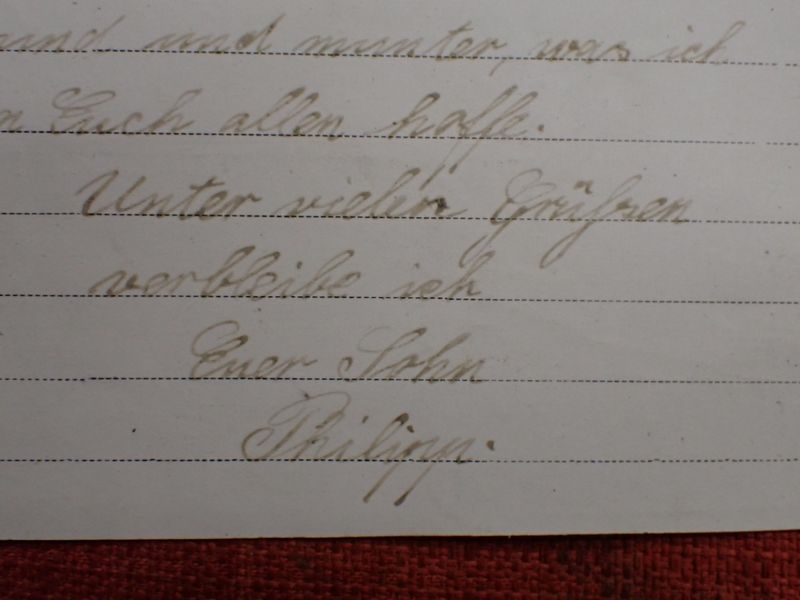 und und munter, was ich
n Euch allen hoffe.
Unter vielen Grüßen
verbleibe ich
Euer Sohn
Philipp.